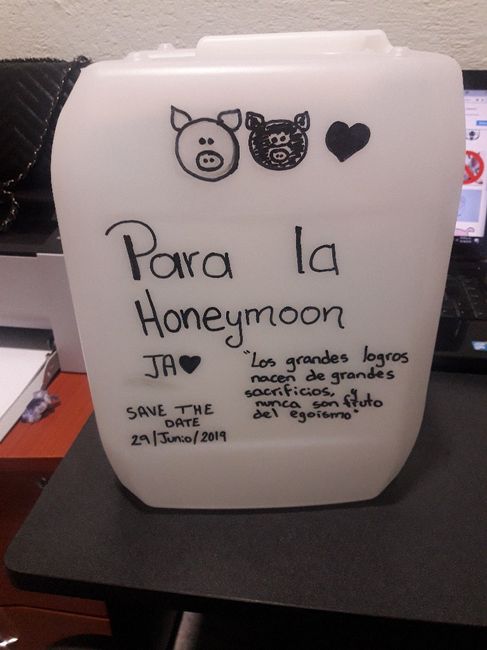 Para la
Honeymoon
JA♥
"Los grandes logros
nacen de grandes
sacrificios, y
nunca son fruto
del egoismo"
SAVE THE
DATE
29/Junio/2019